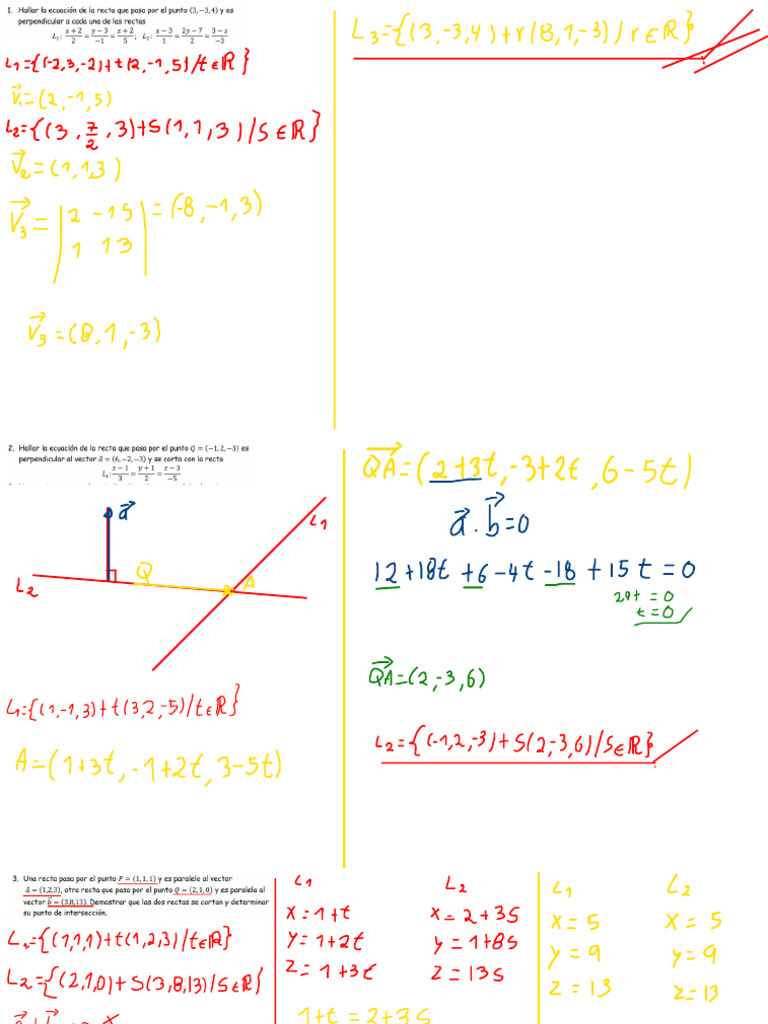 1. Hallar la ecuación de la recta que pasa por el punto (3, −3, 4) y es
perpendicular a cada una de las rectas
L₁: (x+2)/2 = (y−3)/−1 = (z+2)/5; L₂: (x−3)/1 = (2y−7)/2 = (3−z)/−3
L₁={(-2,3,-2)+t(2,-1,5)/t∈ℝ}
V₁=(2,-1,5)
L₂={(3, 7/2, 3)+S(1,1,3)/S∈ℝ}
V₂=(1,1,3)
V₃= |2 -1 5| =(-8,-1,3)
|1 1 3|
V₃=(8,1,-3)
L₃={(3,-3,4)+r(8,1,-3)/r∈ℝ}
2. Hallar la ecuación de la recta que pasa por el punto Q = (−1, 2, −3) es
perpendicular al vector a⃗ = (6, −2, −3) y se corta con la recta
L₁: (x−1)/3 = (y+1)/2 = (z−3)/−5
a⃗
L₁
Q
A
L₂
L₁={(1,-1,3)+t(3,2,-5)/t∈ℝ}
A=(1+3t,-1+2t,3-5t)
QA=(2+3t,-3+2t,6-5t)
a⃗.b⃗=0
12+18t+6-4t-18+15t=0
29t=0
t=0
QA=(2,-3,6)
L₂={(-1,2,-3)+S(2,-3,6)/S∈ℝ}
3. Una recta pasa por el punto P = (1, 1, 1) y es paralelo al vector
a⃗ = (1,2,3), otra recta que pasa por el punto Q = (2, 1, 0) y es paralelo al
vector b⃗ = (3,8,13). Demostrar que las dos rectas se cortan y determinar
su punto de intersección.
L₁={(1,1,1)+t(1,2,3)/t∈ℝ}
L₂={(2,1,0)+S(3,8,13)/S∈ℝ}
L₁ L₂
X=1+t X=2+3S
y=1+2t y=1+8S
Z=1+3t Z=13S
1+t=2+3S
L₁ L₂
X=5 X=5
y=9 y=9
Z=13 Z=13